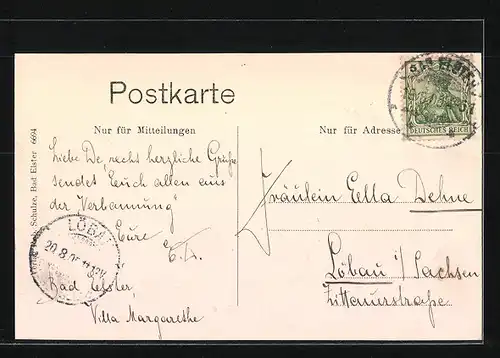 Postkarte
Nur für Mitteilungen
Nur für Adresse
DEUTSCHES REICH
BAD ELSTER
Schulze, Bad Elster 6694
Liebe De recht herzliche Grüße
sendet Euch allen aus
der Verbannung
Eure
E.A.
LÖBAU
20.8.
Bad Elster,
Villa Margarethe
Fräulein Ella Dehne
Löbau i/Sachsen
Zittauerstraße